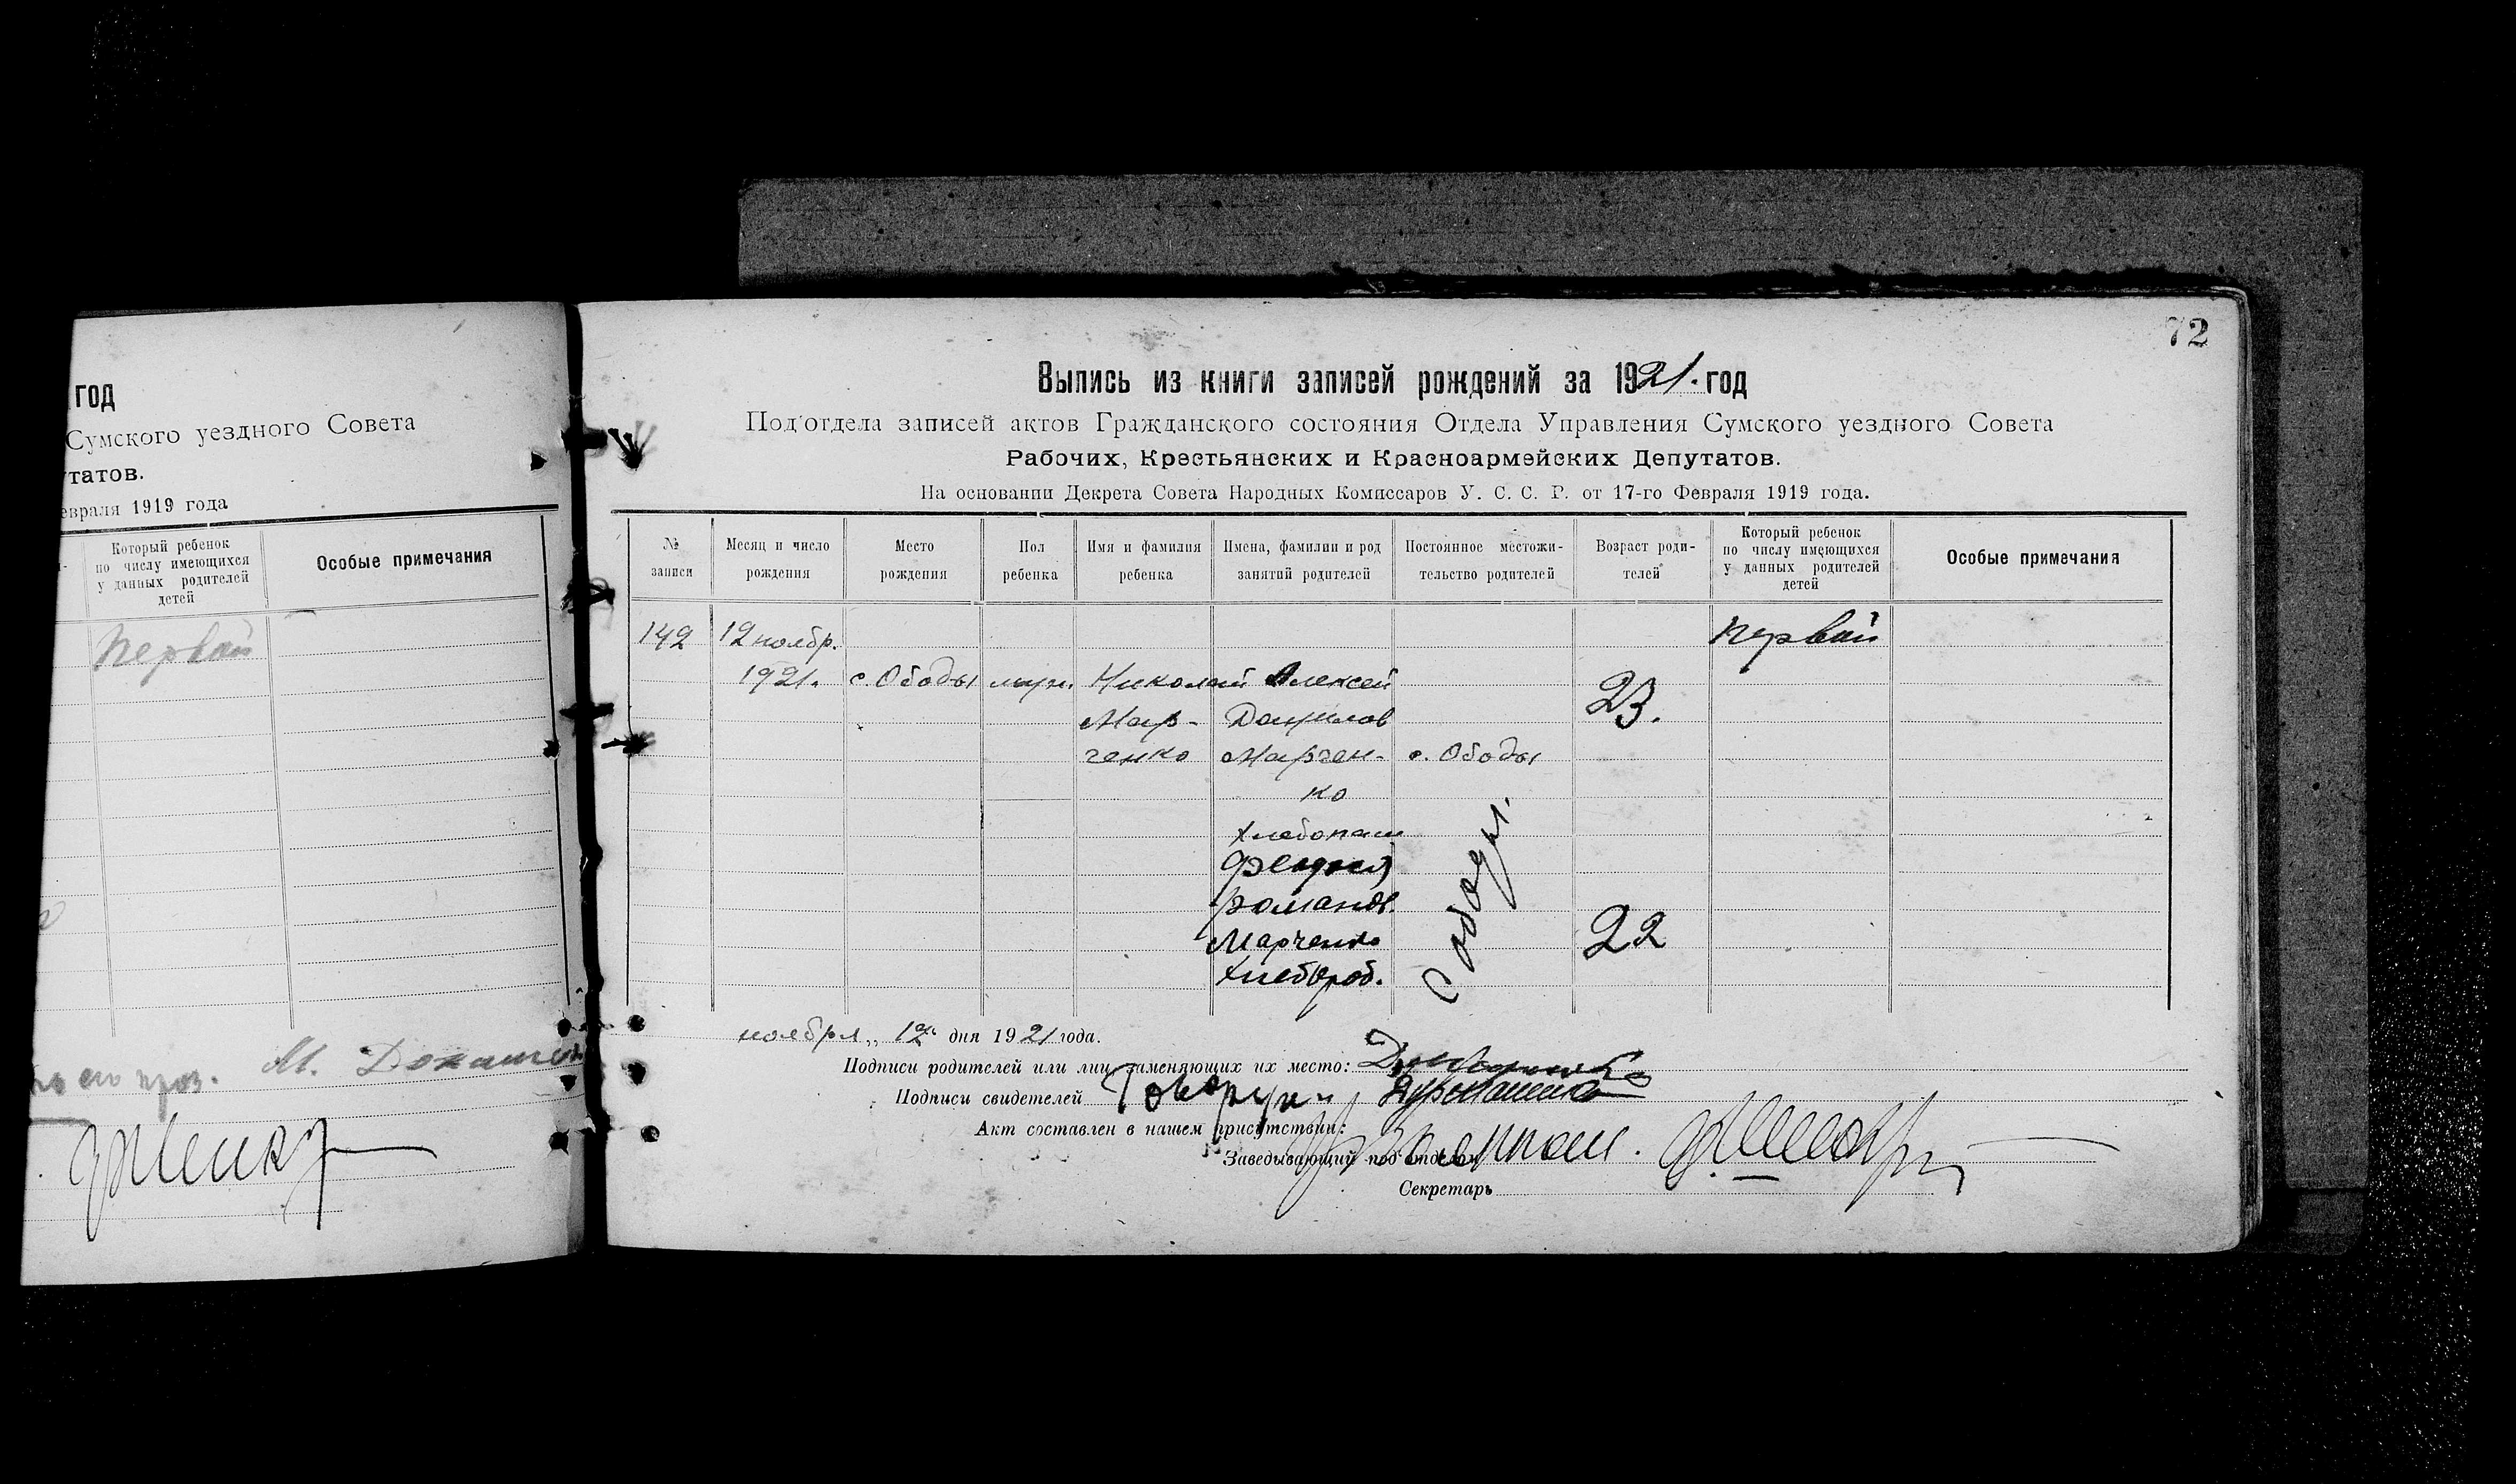 год
Сумского уездного Совета
утатов.
евраля 1919 года
Который ребенок
по числу имеющихся
у данных родителей
детей
Особые примечания
первый
М.
72
Выпись из книги записей рождений за 1921. год
Под'отдела записей актов Гражданского состояния Отдела Управления Сумского уездного Совета
Рабочих, Крестьянских и Красноармейских Депутатов.
На основании Декрета Совета Народных Комиссаров У. С. С. Р. от 17-го Февраля 1919 года.
№
записи
Месяц и число
рождения
Место
рождения
Пол
ребенка
Имя и фамилия
ребенка
Имена, фамилии и род
занятий родителей
Постоянное местожи-
тельство родителей
Возраст роди-
телей
Который ребенок
по числу имеющихся
у данных родителей
детей
Особые примечания
142
12 ноябр.
1921.
с. Ободы
муж.
Николай
Мар-
ченко
Алексей
Данилов
Марчен-
ко
Хлебопаш
с. Ободы
23.
первый
Романов.
Марченко
Хлебороб.
с Ободы.
22
ноября „ 12 " дня 1921 года.
Подписи родителей или лиц заменяющих их место:
Подписи свидетелей
Акт составлен в нашем присутствии:
Заведывающий под'отделом
Секретарь